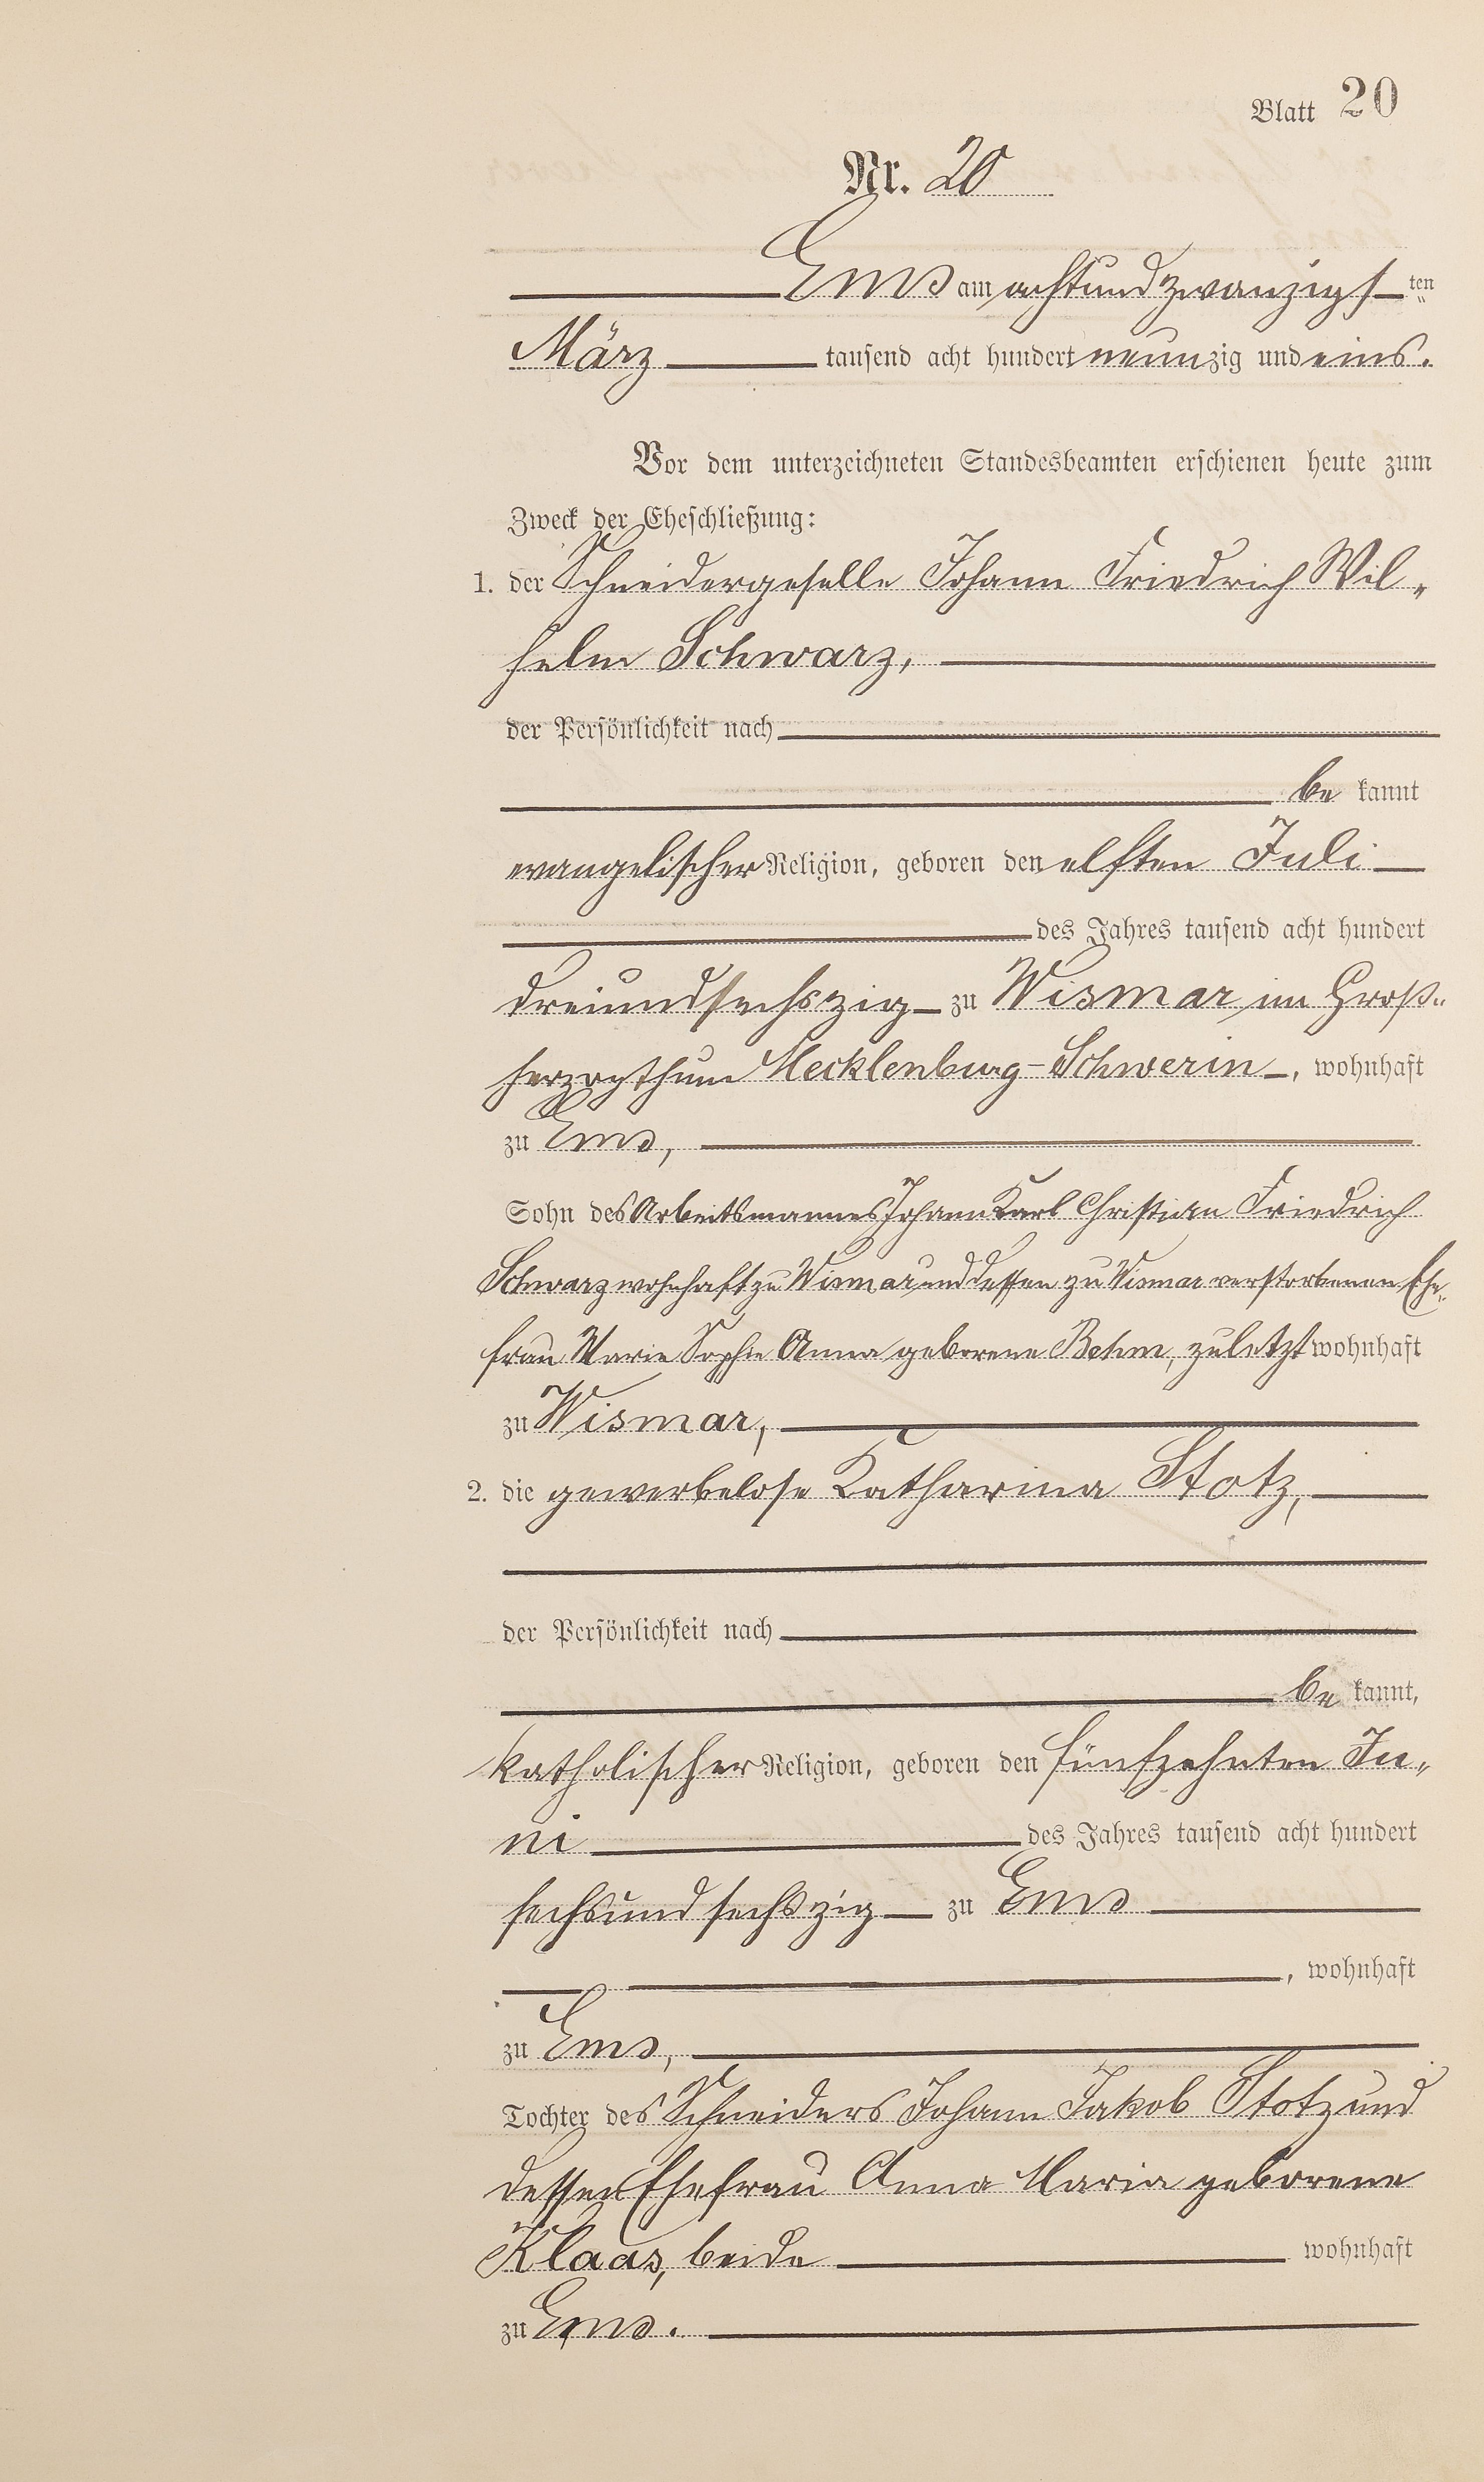 Blatt 20
Nr. 20
Ems am achtundzwanzigsten
März tausend acht hundert neunzig und eins.
Vor dem unterzeichneten Standesbeamten erschienen heute zum
Zweck der Eheschließung:
1. der Schneidergeselle Johann Friedrich Wil„
helm Schwarz,
der Persönlichkeit nach
be kannt
evangelischer Religion, geboren den elften Juli
des Jahres tausend acht hundert
dreiundsechszig zu Wismar im Groß„
herzogthum Mecklenburg-Schwerin, wohnhaft
zu Ems,
Sohn des Arbeitsmannes Johann Karl Christian Friedrich
Schwarz wohnhaft zu Wismar und dessen zu Wismar verstorbenen Ehe„
frau Marie Sophie Anna geborene Behm, zuletzt wohnhaft
zu Wismar,
2. die gewerbelose Katharina Stotz,
der Persönlichkeit nach
be kannt,
katholischer Religion, geboren den fünfzehnten Ju„
ni des Jahres tausend acht hundert
sechsundsechszig zu Ems
, wohnhaft
zu Ems,
Tochter des Schneiders Johann Jakob Stotz und
dessen Ehefrau Anna Maria geborene
Klaas, beide wohnhaft
zu Ems.